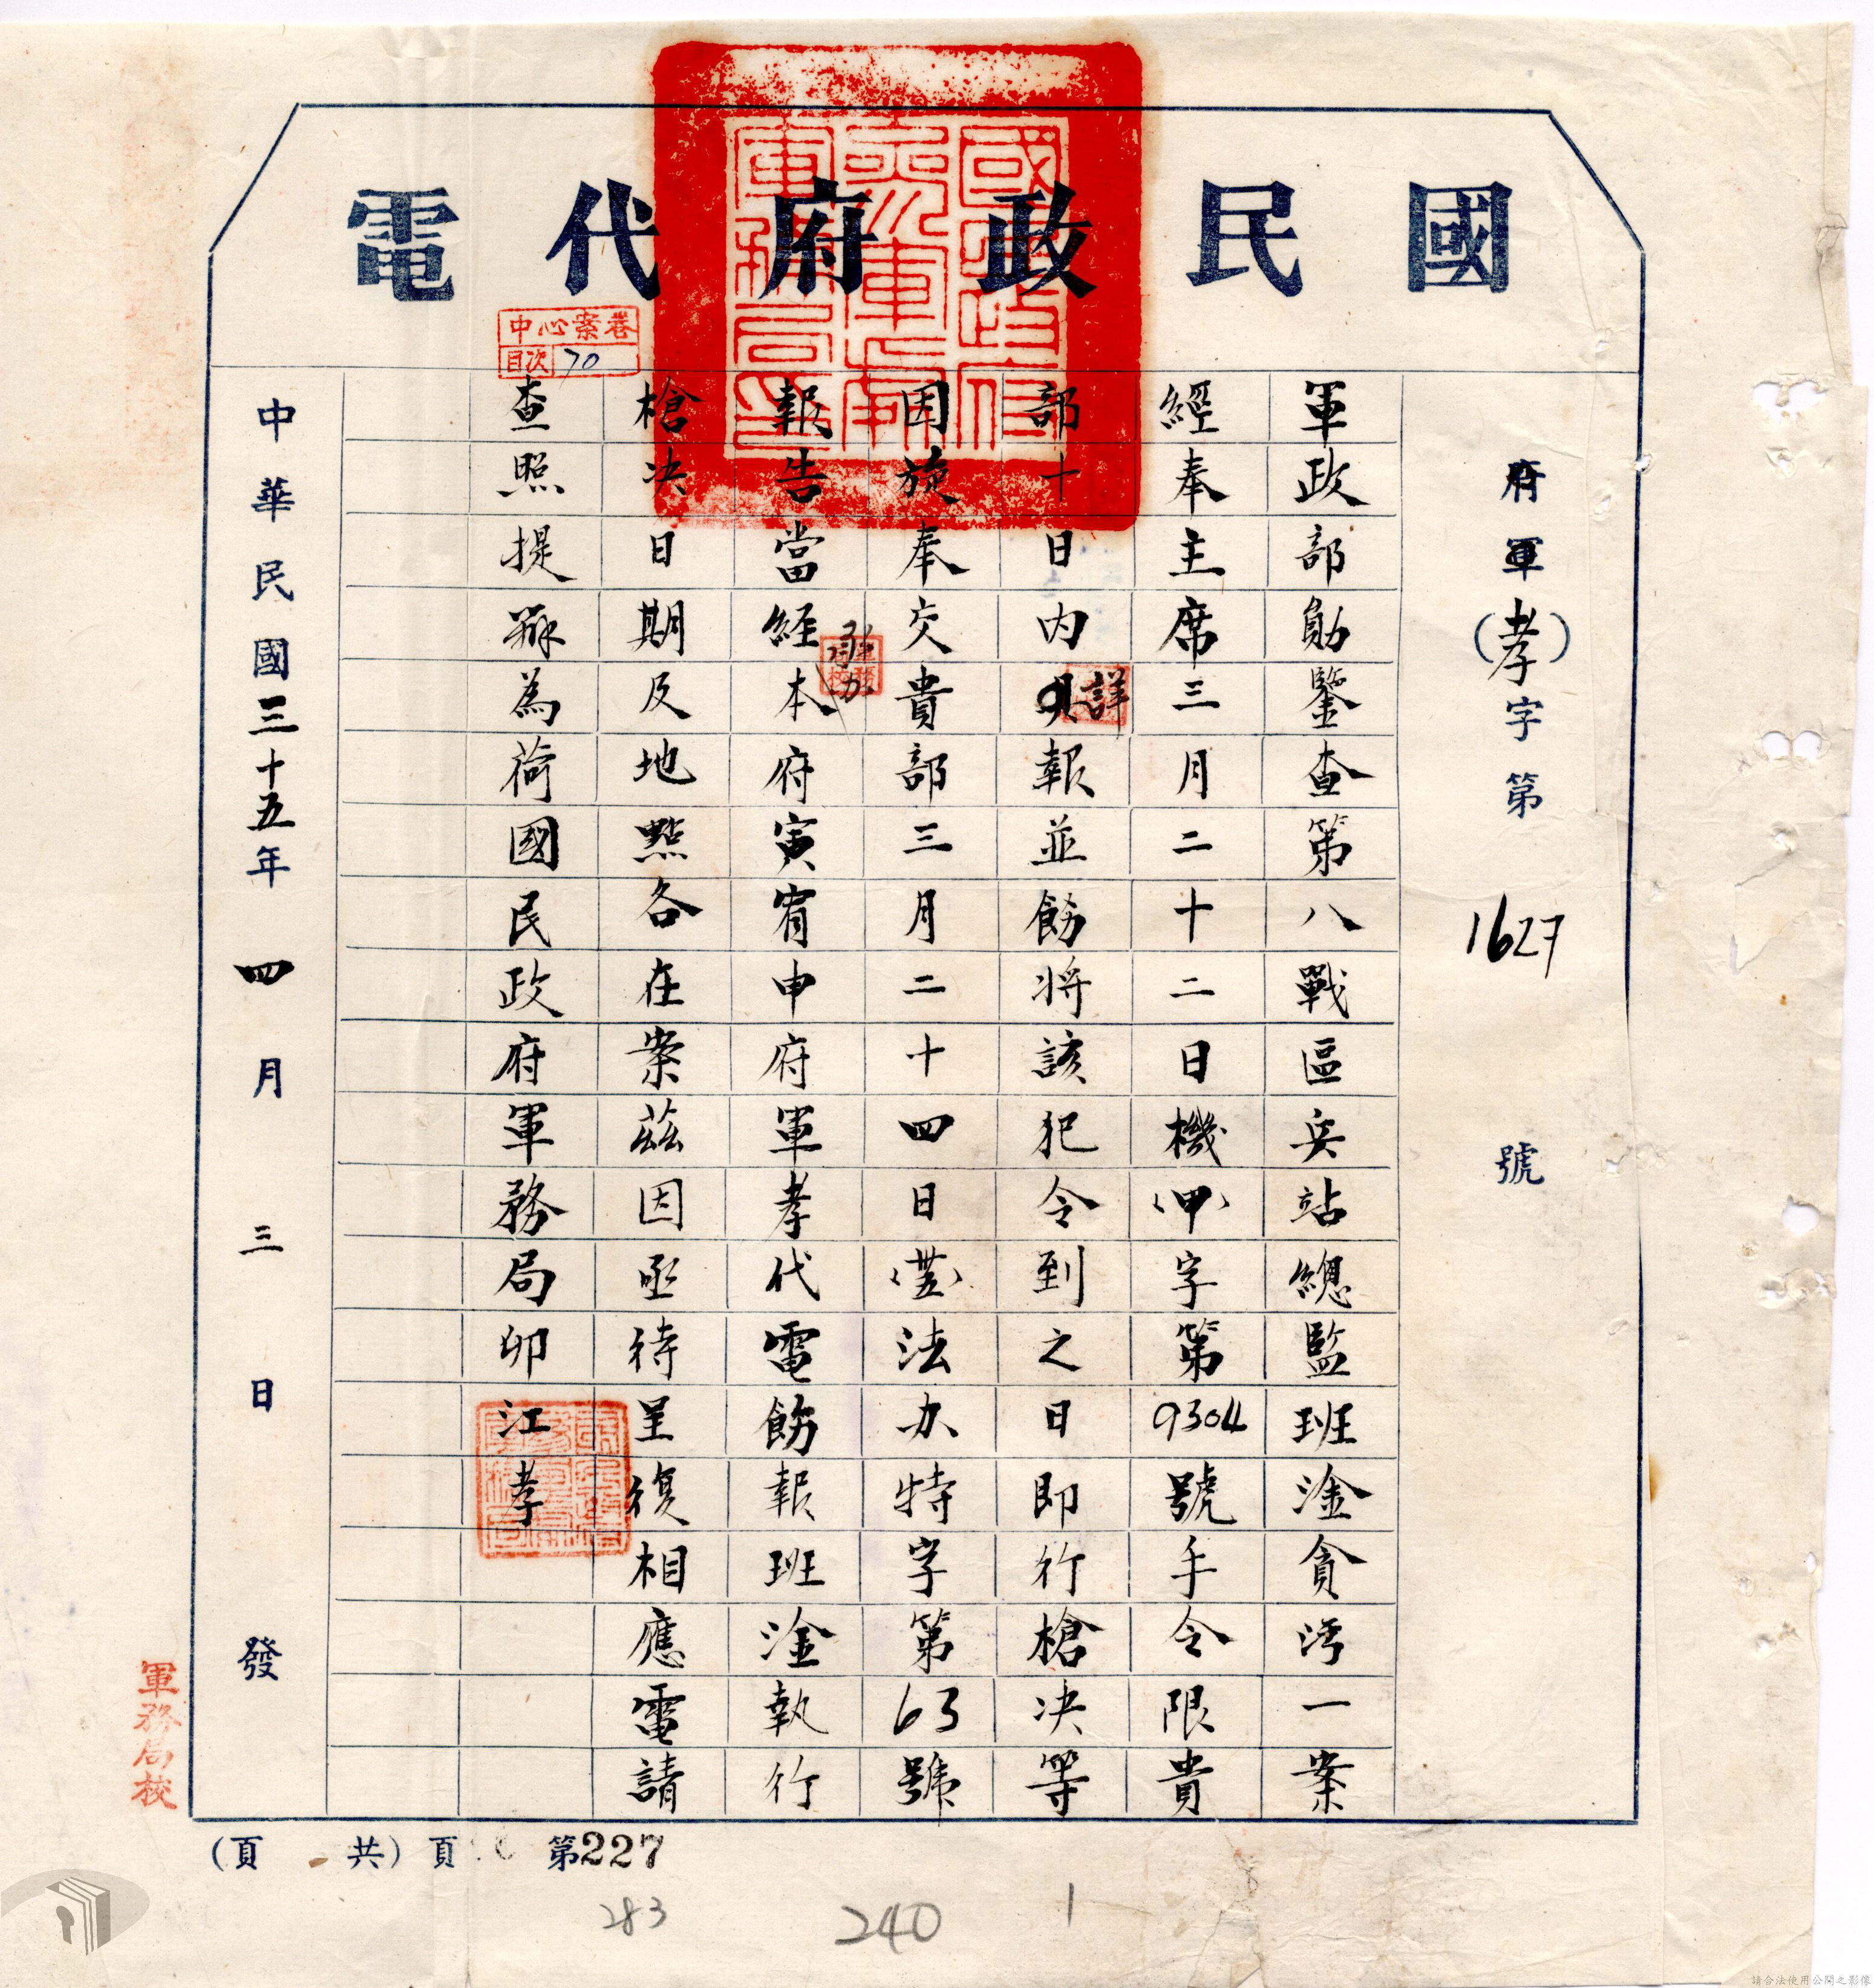 國民政府代電
府軍(孝)字第1627號
軍政部勛鑒查第八戰區兵站總監班淦貪污一案
經奉主席三月二十二日機(甲)字第9304號手令限貴
部十日內詳報並飭將該犯令到之日即行槍決等
因旋奉交貴部三月二十四日法办特字第63號
報告當經本府寅宥申府軍孝代電飭報班淦執行
承办
槍決日期及地點各在案茲因亟待呈復相應電請
查照提辦為荷國民政府軍務局卯江孝
中華民國三十五年四月三日發
中心案卷
目次 70
軍務局校
第227頁(共頁
283
240
1
請合法使用公開之影像